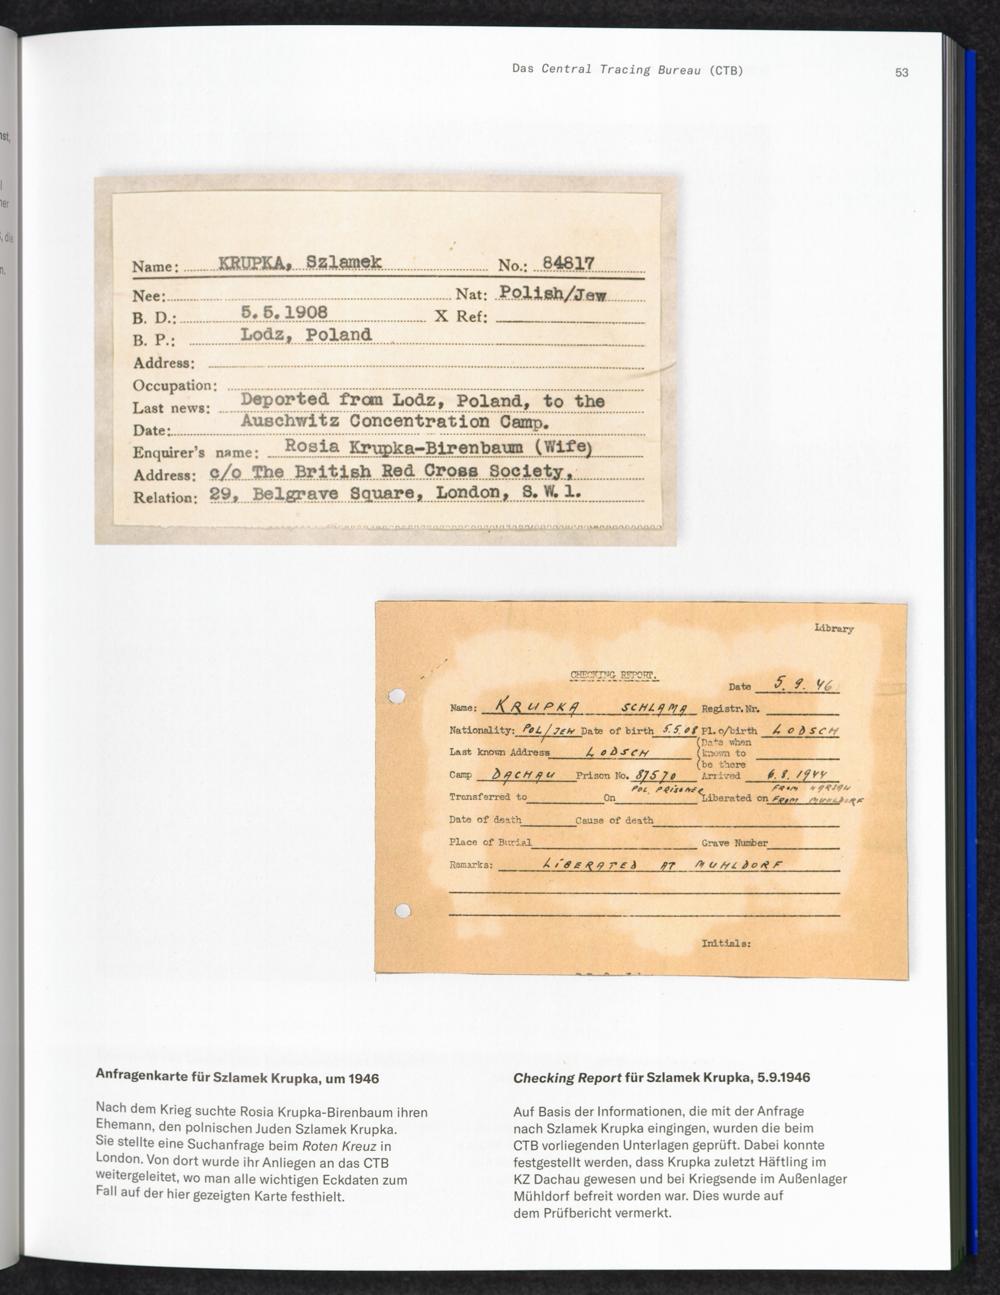 Das Central Tracing Bureau (CTB) 53
Name: KRUPKA, Szlamek No.: 84817
Nee: Nat: Polish/Jew
B. D.: 5.5.1908 X Ref:
B. P.: Lodz, Poland
Address:
Occupation:
Last news: Deported from Lodz, Poland, to the
Date: Auschwitz Concentration Camp.
Enquirer's name: Rosia Krupka-Birenbaum (Wife)
Address: c/o The British Red Cross Society,
Relation: 29, Belgrave Square, London, S.W.1.
Library
CHECKING REPORT.
Date 5.9.46
Name: KRUPKA SCHLAMA Registr.Nr.
Nationality: POL/JEW Date of birth 5.5.08 Pl.o/birth LODSCH
Last known Address LODSCH (Date when
(known to
(be there
Camp DACHAU Prison No. 87570 Arrived 6.8.1944
POL. PRISONER FROM WARSAW
Transferred to On Liberated on FROM MUHLDORF
Date of death Cause of death
Place of Burial Grave Number
Remarks: LIBERATED AT MUHLDORF
Initials:
Anfragenkarte für Szlamek Krupka, um 1946
Nach dem Krieg suchte Rosia Krupka-Birenbaum ihren
Ehemann, den polnischen Juden Szlamek Krupka.
Sie stellte eine Suchanfrage beim Roten Kreuz in
London. Von dort wurde ihr Anliegen an das CTB
weitergeleitet, wo man alle wichtigen Eckdaten zum
Fall auf der hier gezeigten Karte festhielt.
Checking Report für Szlamek Krupka, 5.9.1946
Auf Basis der Informationen, die mit der Anfrage
nach Szlamek Krupka eingingen, wurden die beim
CTB vorliegenden Unterlagen geprüft. Dabei konnte
festgestellt werden, dass Krupka zuletzt Häftling im
KZ Dachau gewesen und bei Kriegsende im Außenlager
Mühldorf befreit worden war. Dies wurde auf
dem Prüfbericht vermerkt.